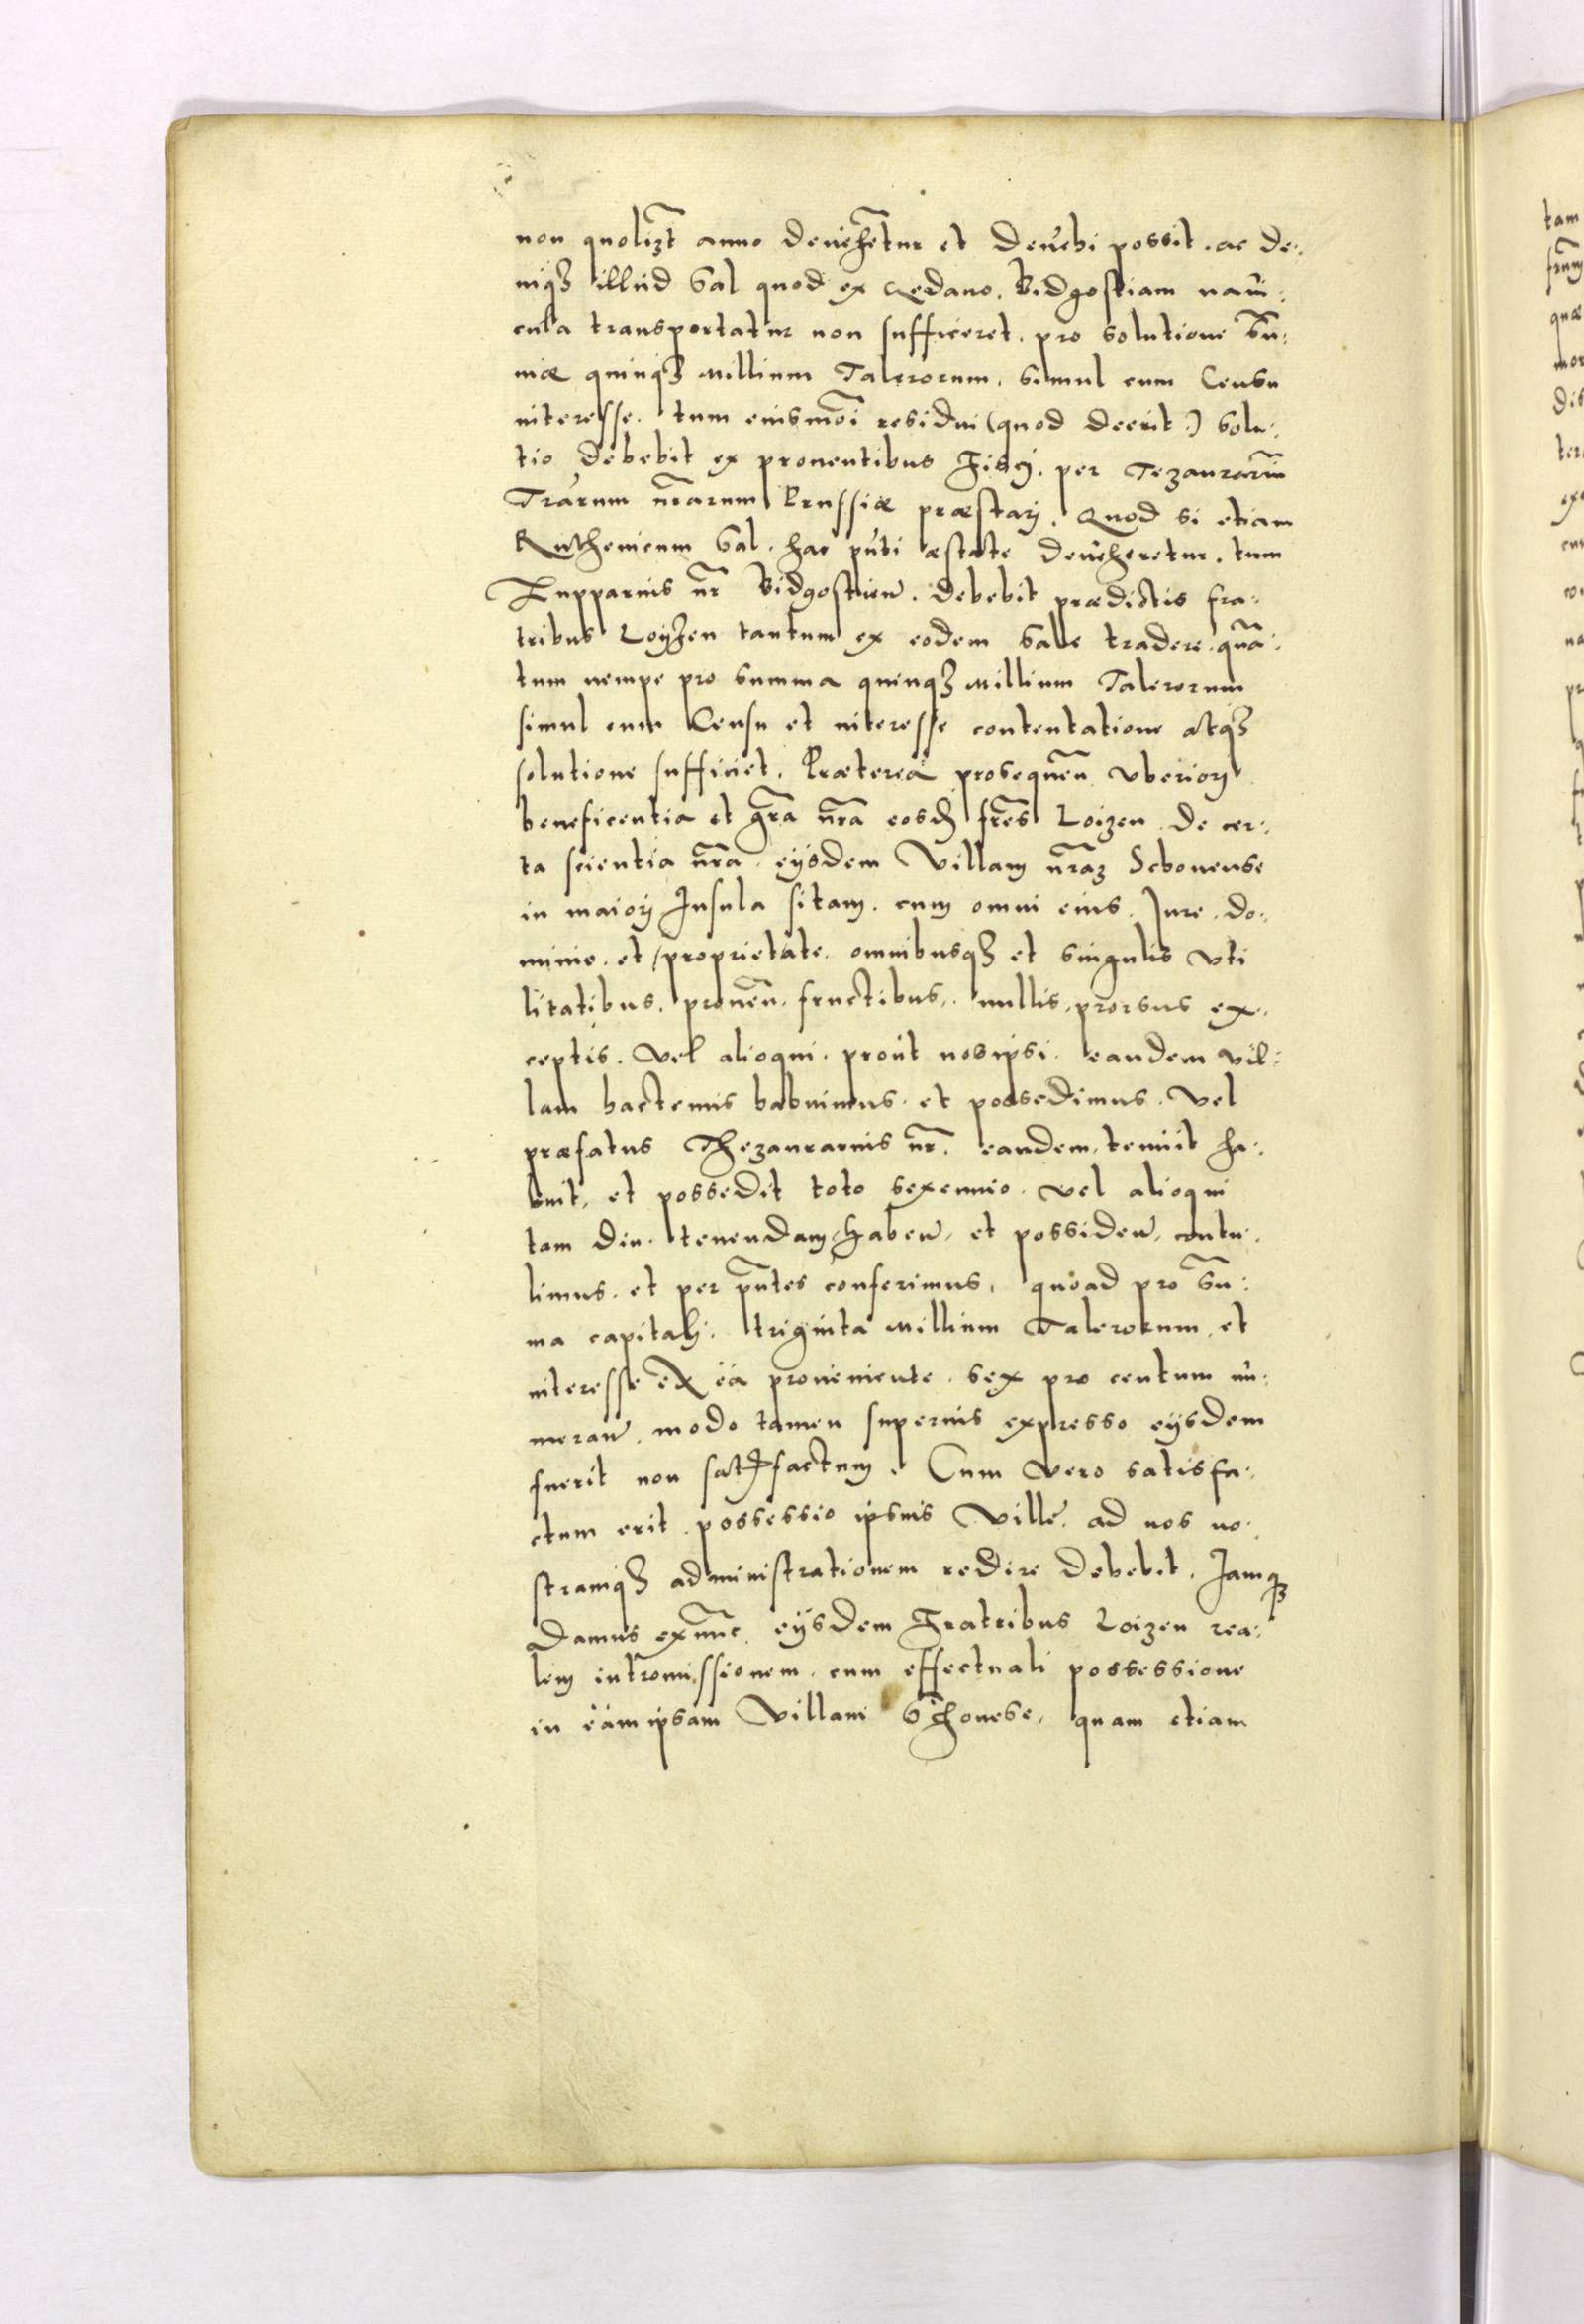 non quolizt anno deuehetur et deuehi possit. ac de:
niqꝫ illud Sal quod ex Gedano. Bidgostiam naui:
cula transportatur non sufficeret. pro solutione Su:
mæ quinqꝫ Millium Talerorum. simul cum Censu
interesse. tum eiusmoi residui (quod deerit:) solu:
tio debebit ex prouentibus Fiscj. per Tezaurariu
Trarum nrarum Prussiæ præstarj. Quod si etiam
Ruthenicum Sal. hac pnti æstate deueheretur. tum
Zupparius nr Bidgostien. debebit prædictis fra:
tribus Loyzen tantum ex eodem Sale tradere. qua:
tum nempe pro summa quinqꝫ Millium Talerorum
simul cum Censu et interesse contentatione atqꝫ
solutione sufficiet. Præterea prosequen vberiorj
beneficentia et gra nra eosd fres Loizen de cer:
ta scientia nra. eysdem Villam nraꝫ Schonense
in maiorj Insula sitam. cum omni eius. Jure. do:
minio. et proprietate. omnibusqꝫ et singulis vti
litatibus. prouen. fructibus. nullis. prorsus ex:
ceptis. Vel alioqui. prout nosipsi. eandem vil:
lam hactenus habuimus. et possedimus. Vel
præfatus Thezaurarius nr. eandem. tenuit ha:
buit, et possedit toto sexennio. vel alioqui
tam diu. tenendam, haben, et possiden, contu:
limus. et per pntes conferimus, quoad pro Su:
ma capitalj. triginta Millium Talerorum, et
interesse ex ea proueniente. sex pro centum nu:
meran. modo tamen superius expresso eysdem
fuerit non satisfactum. Cum vero satisfa:
ctum erit. possessio ipsius Ville. ad nos no:
stramqꝫ administrationem redire debebit. Jamqꝫ
damus exnunc. eysdem Fratribus Loizen rea:
lem intromissionem. cum effectuali possessione
in eamipsam Villam Schonese, quam etiam